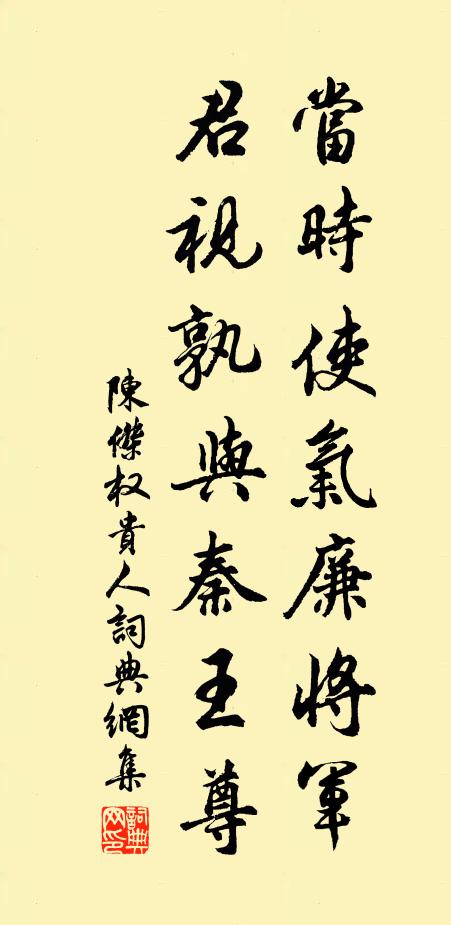 當時使氣廉將軍
君視孰與秦王尊
陳傑权貴人詞典網集
詞典網印